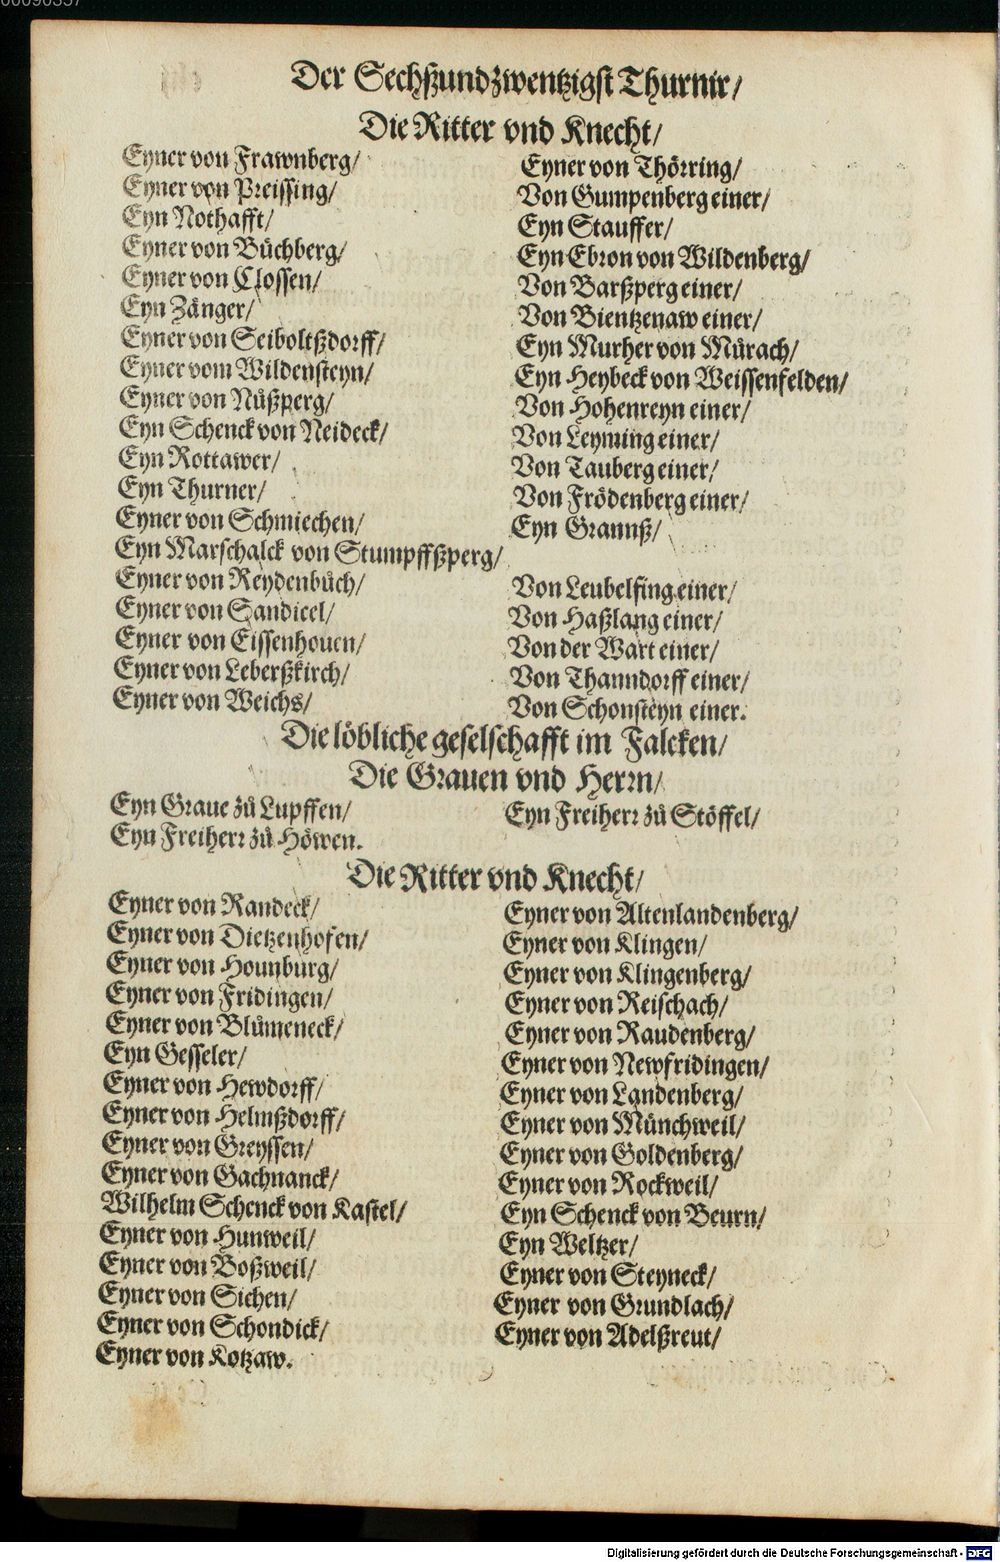 Der Sechßundzwentzigst Thurnir/
Die Ritter vnd Knecht/
Eyner von Frawnberg/
Eyner von Preissing/
Eyn Nothafft/
Eyner von Bůchberg/
Eyner von Clossen/
Eyn Zänger/
Eyner von Seiboltßdorff/
Eyner vom Wildensteyn/
Eyner von Nůßperg/
Eyn Schenck von Neideck/
Eyn Rottawer/
Eyn Thurner/
Eyner von Schmiechen/
Eyn Marschalck von Stumpffßperg/
Eyner von Reydenbůch/
Eyner von Sandicel/
Eyner von Eissenhouen/
Eyner von Leberßkirch/
Eyner von Weichs/
Eyner von Thörring/
Von Gumpenberg einer/
Eyn Stauffer/
Eyn Ebron von Wildenberg/
Von Barßperg einer/
Von Bientzenaw einer/
Eyn Murher von Můrach/
Eyn Heybeck von Weissenfelden/
Von Hohenreyn einer/
Von Leyming einer/
Von Tauberg einer/
Von Frödenberg einer/
Eyn Grannß/
Von Leubelfing einer/
Von Haßlang einer/
Von der Wart einer/
Von Thanndorff einer/
Von Schonsteyn einer.
Die löbliche geselschafft im Falcken/
Die Grauen vnd Herrn/
Eyn Graue zů Lupffen/
Eyn Freiherr zů Höwen.
Eyn Freiherr zů Stöffel/
Die Ritter vnd Knecht/
Eyner von Randeck/
Eyner von Dietzenhofen/
Eyner von Hounburg/
Eyner von Fridingen/
Eyner von Blůmeneck/
Eyn Gesseler/
Eyner von Hewdorff/
Eyner von Helmßdorff/
Eyner von Greyssen/
Eyner von Gachnanck/
Wilhelm Schenck von Kastel/
Eyner von Hunweil/
Eyner von Boßweil/
Eyner von Sichen/
Eyner von Schondick/
Eyner von Kotzaw.
Eyner von Altenlandenberg/
Eyner von Klingen/
Eyner von Klingenberg/
Eyner von Reischach/
Eyner von Raudenberg/
Eyner von Newfridingen/
Eyner von Landenberg/
Eyner von Münchweil/
Eyner von Goldenberg/
Eyner von Rockweil/
Eyn Schenck von Beurn/
Eyn Weltzer/
Eyner von Steyneck/
Eyner von Grundlach/
Eyner von Adelßreut/
Digitalisierung gefördert durch die Deutsche Forschungsgemeinschaft - DFG